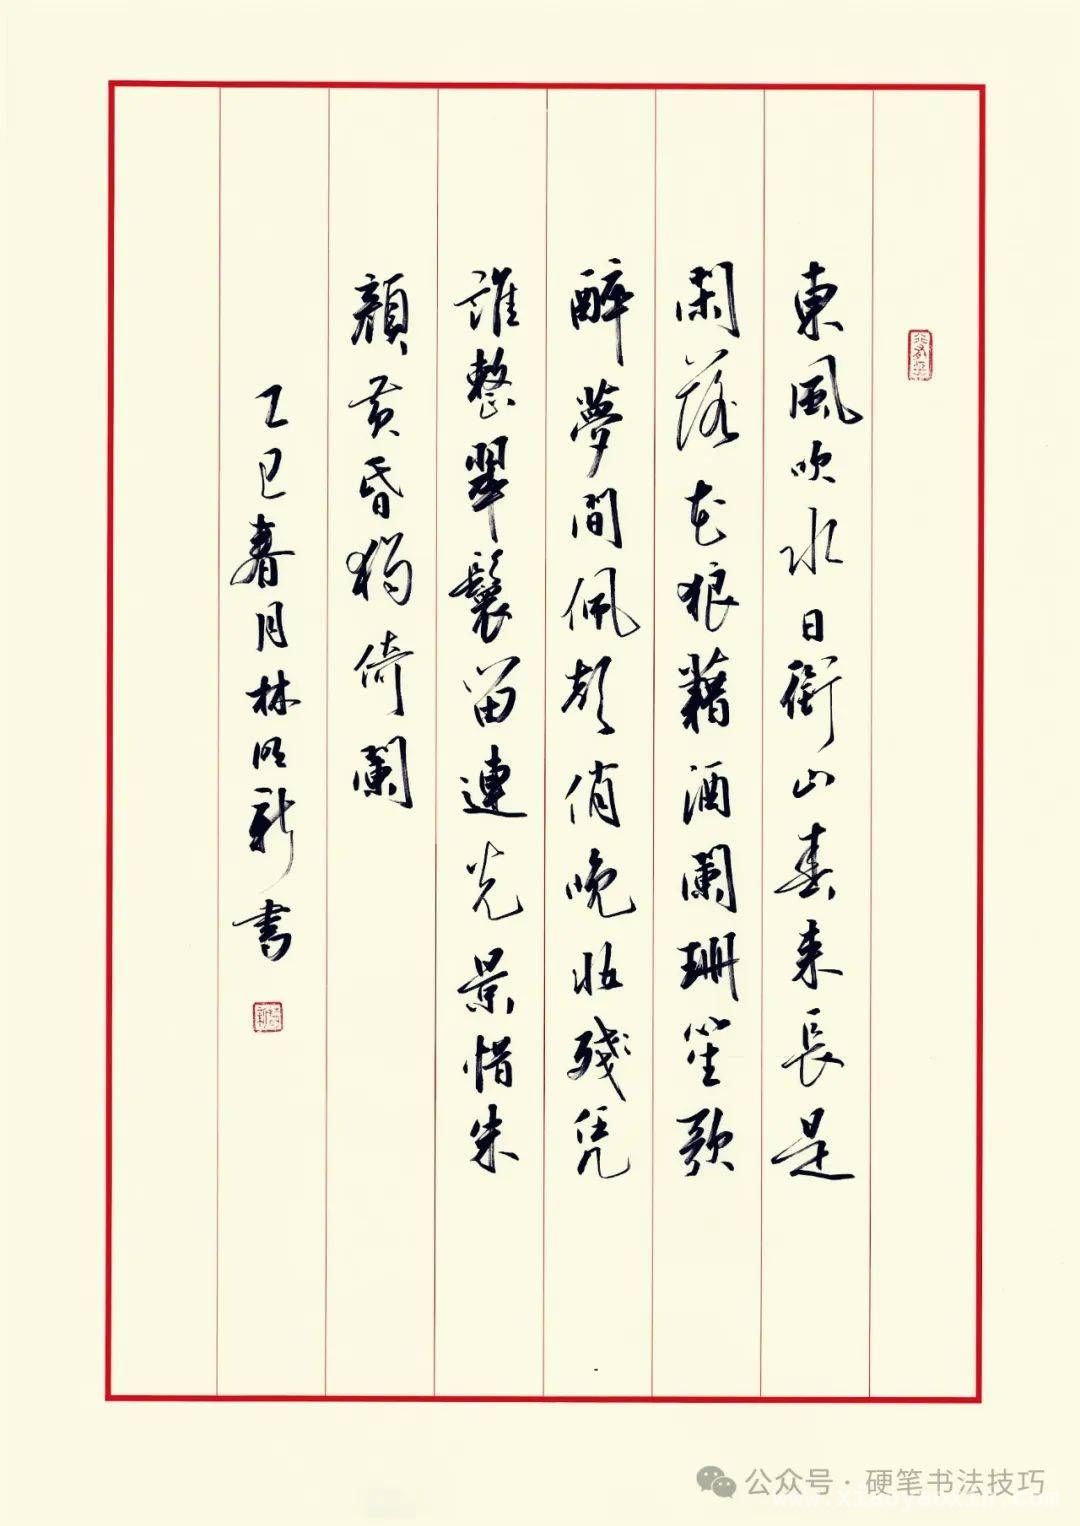 東風吹水日銜山春来長是
閑落花狼藉酒闌珊笙歌
醉夢間佩聲悄晚妝殘凭
誰整翠鬟留連光景惜朱
顔黄昏獨倚闌
乙巳春月林明新書
公众号 · 硬笔书法技巧